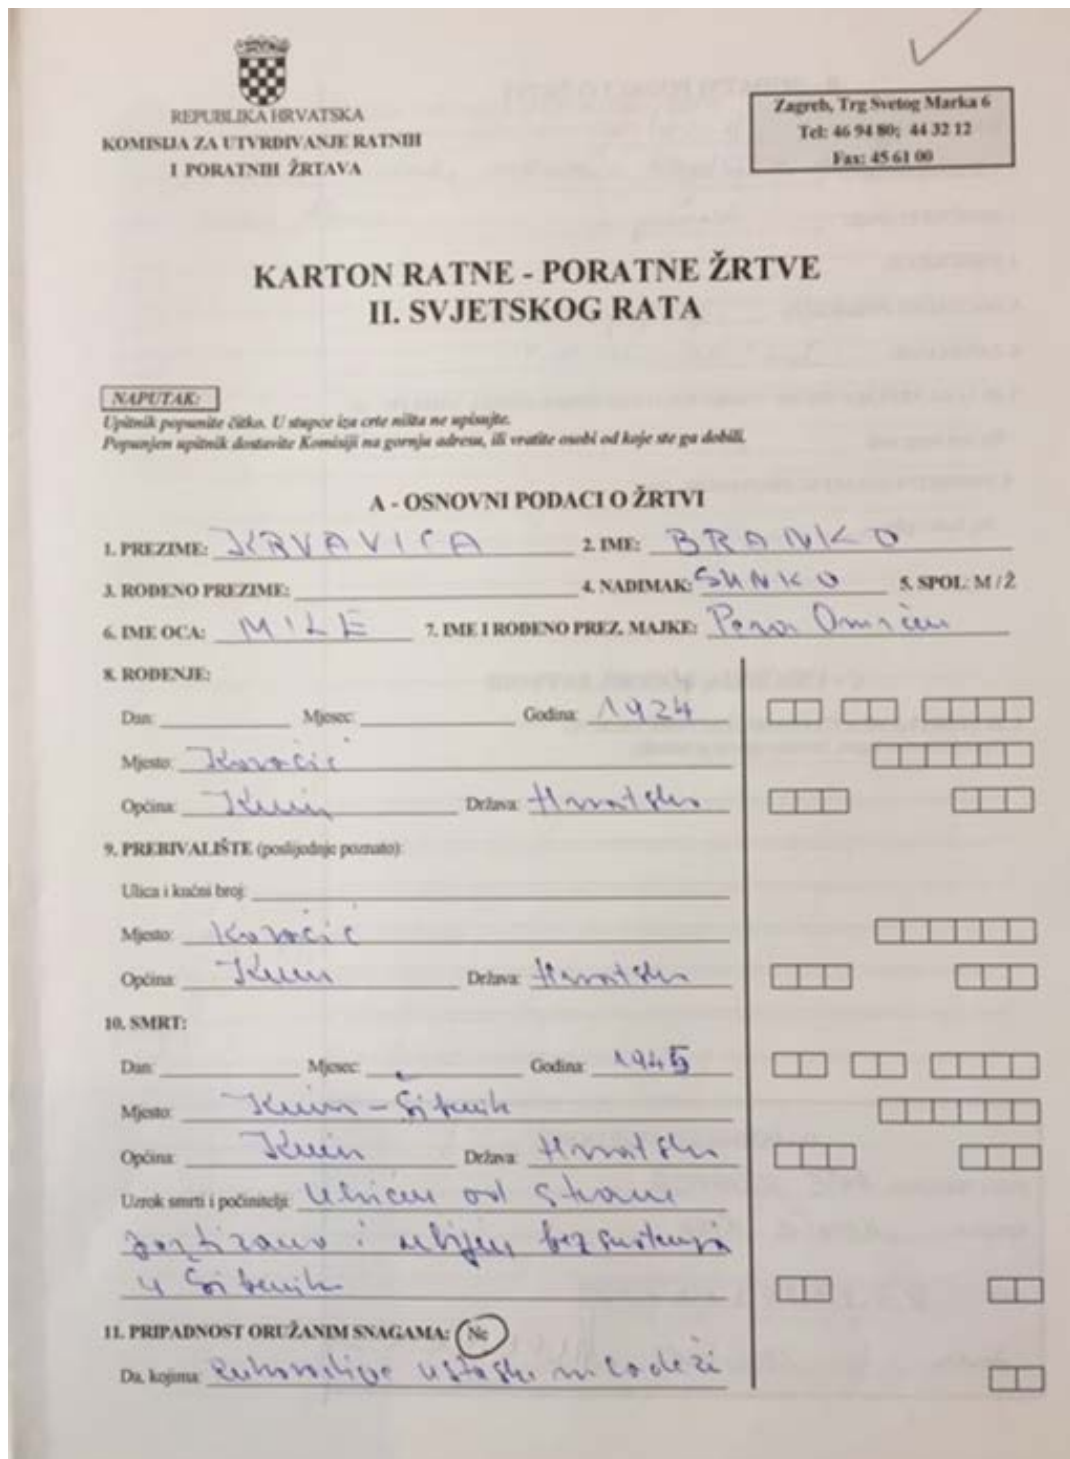 REPUBLIKA HRVATSKA
KOMISIJA ZA UTVRĐIVANJE RATNIH
I PORATNIH ŽRTAVA
Zagreb, Trg Svetog Marka 6
Tel: 46 94 80; 44 32 12
Fax: 45 61 00
KARTON RATNE - PORATNE ŽRTVE
II. SVJETSKOG RATA
NAPUTAK:
Upitnik popunite čitko. U stupce iza crte ništa ne upisujte.
Popunjen upitnik dostavite Komisiji na gornju adresu, ili vratite osobi od koje ste ga dobili.
A - OSNOVNI PODACI O ŽRTVI
1. PREZIME: KRVAVICA 2. IME: BRANKO
3. ROĐENO PREZIME: 4. NADIMAK: SUNKO 5. SPOL: M / Ž
6. IME OCA: MILE 7. IME I ROĐENO PREZ. MAJKE: Pera
8. ROĐENJE:
Dan: Mjesec: Godina: 1924
Mjesto: Kovačić
Općina: Knin Država: Hrvatska
9. PREBIVALIŠTE (posljednje poznato):
Ulica i kućni broj:
Mjesto: Kovačić
Općina: Knin Država: Hrvatska
10. SMRT:
Dan: Mjesec: Godina: 1945
Mjesto: Knin - Šibenik
Općina: Knin Država: Hrvatska
Uzrok smrti i počinitelji: Uhićen od strane
partizana i ubijen bez suđenja
u Šibeniku
11. PRIPADNOST ORUŽANIM SNAGAMA: Ne
Da, kojima: ustaške mladeži